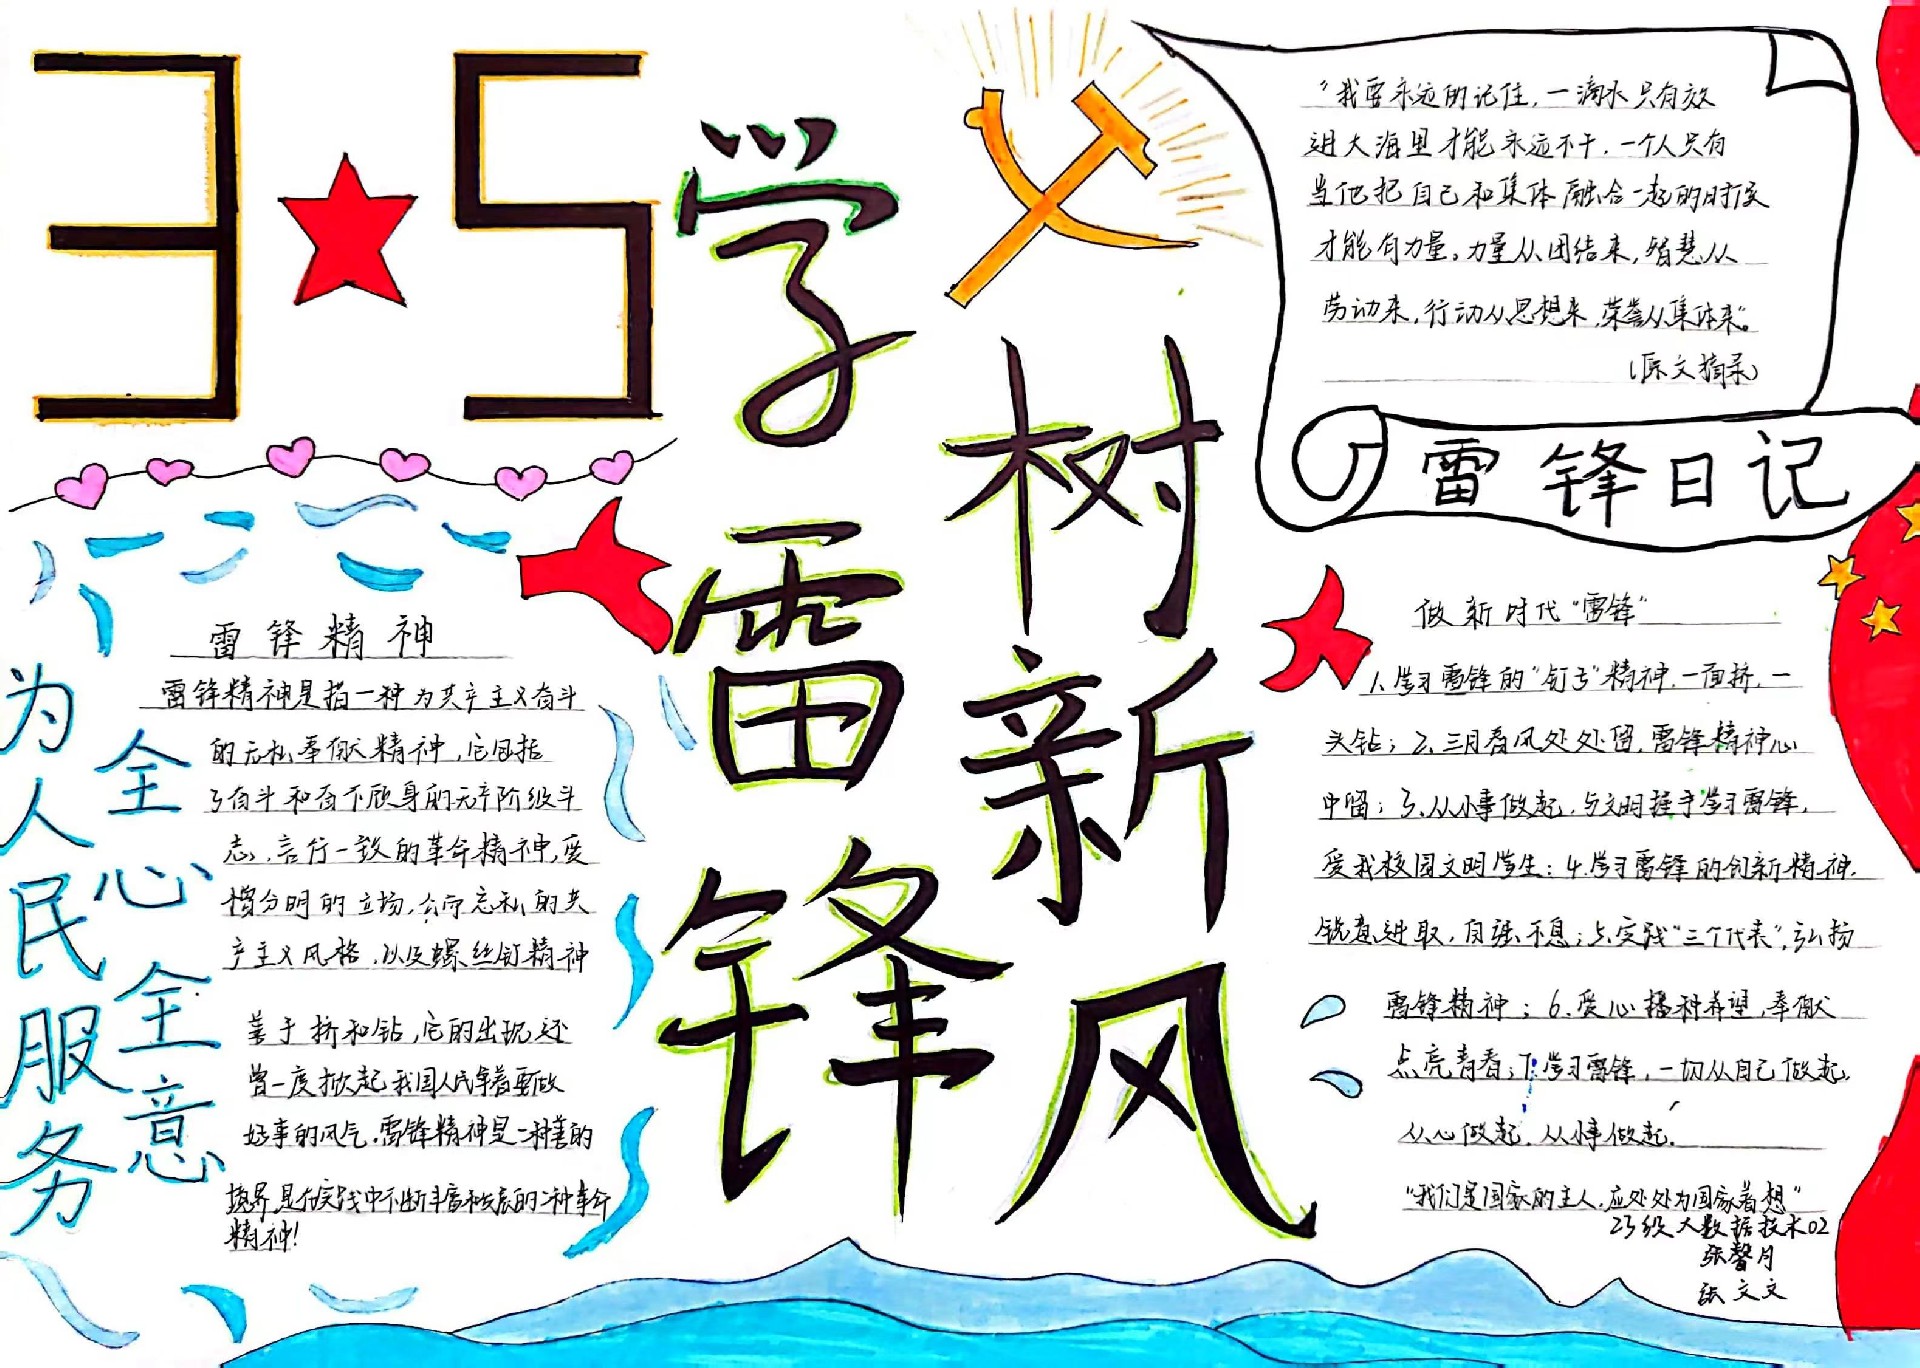 3★5
学雷锋
树新风
"我要永远的记住,一滴水只有放
进大海里才能永远不干,一个人只有
当他把自己和集体融合一起的时候
才能有力量。力量从团结来,智慧从
劳动来,行动从思想来,荣誉从集体来"。
(原文摘录)
雷锋日记
全心全意
为人民服务
雷锋精神
雷锋精神是指一种为共产主义奋斗
的无私奉献精神,它包括
了奋斗和奋不顾身的无产阶级斗
志,言行一致的革命精神,爱
憎分明的立场,公而忘私的共
产主义风格,以及螺丝钉精神
善于挤和钻,它的出现还
曾一度掀起我国人民争着要做
好事的风气,雷锋精神是一种善的
境界,是在实践中不断丰富和发展的一种革命
精神!
做新时代"雷锋"
1、学习雷锋的"钉子"精神,一面挤,一
头钻;2、三月春风处处留,雷锋精神心
中留;3、从小事做起,与文明握手学习雷锋,
爱我校园文明学生;4.学习雷锋的创新精神,
锐意进取,自强不息;5.实践"三个代表",弘扬
雷锋精神;6.爱心播种希望,奉献
点亮青春;7.学习雷锋,一切从自己做起,
从心做起,从小事做起.
"我们是国家的主人,应处处为国家着想"
23级大数据技术02
张馨月
张文文